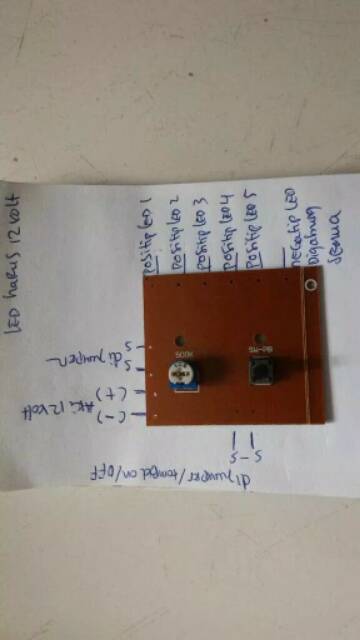 LED harus 12 volt
positip LED 1
positip LED 2
positip LED 3
positip LED 4
positip LED 5
negatip LED
digabung
semua
S
S dijumper
(+)
(-) Aki 12 volt
S - S
dijumper / tombol on / OFF